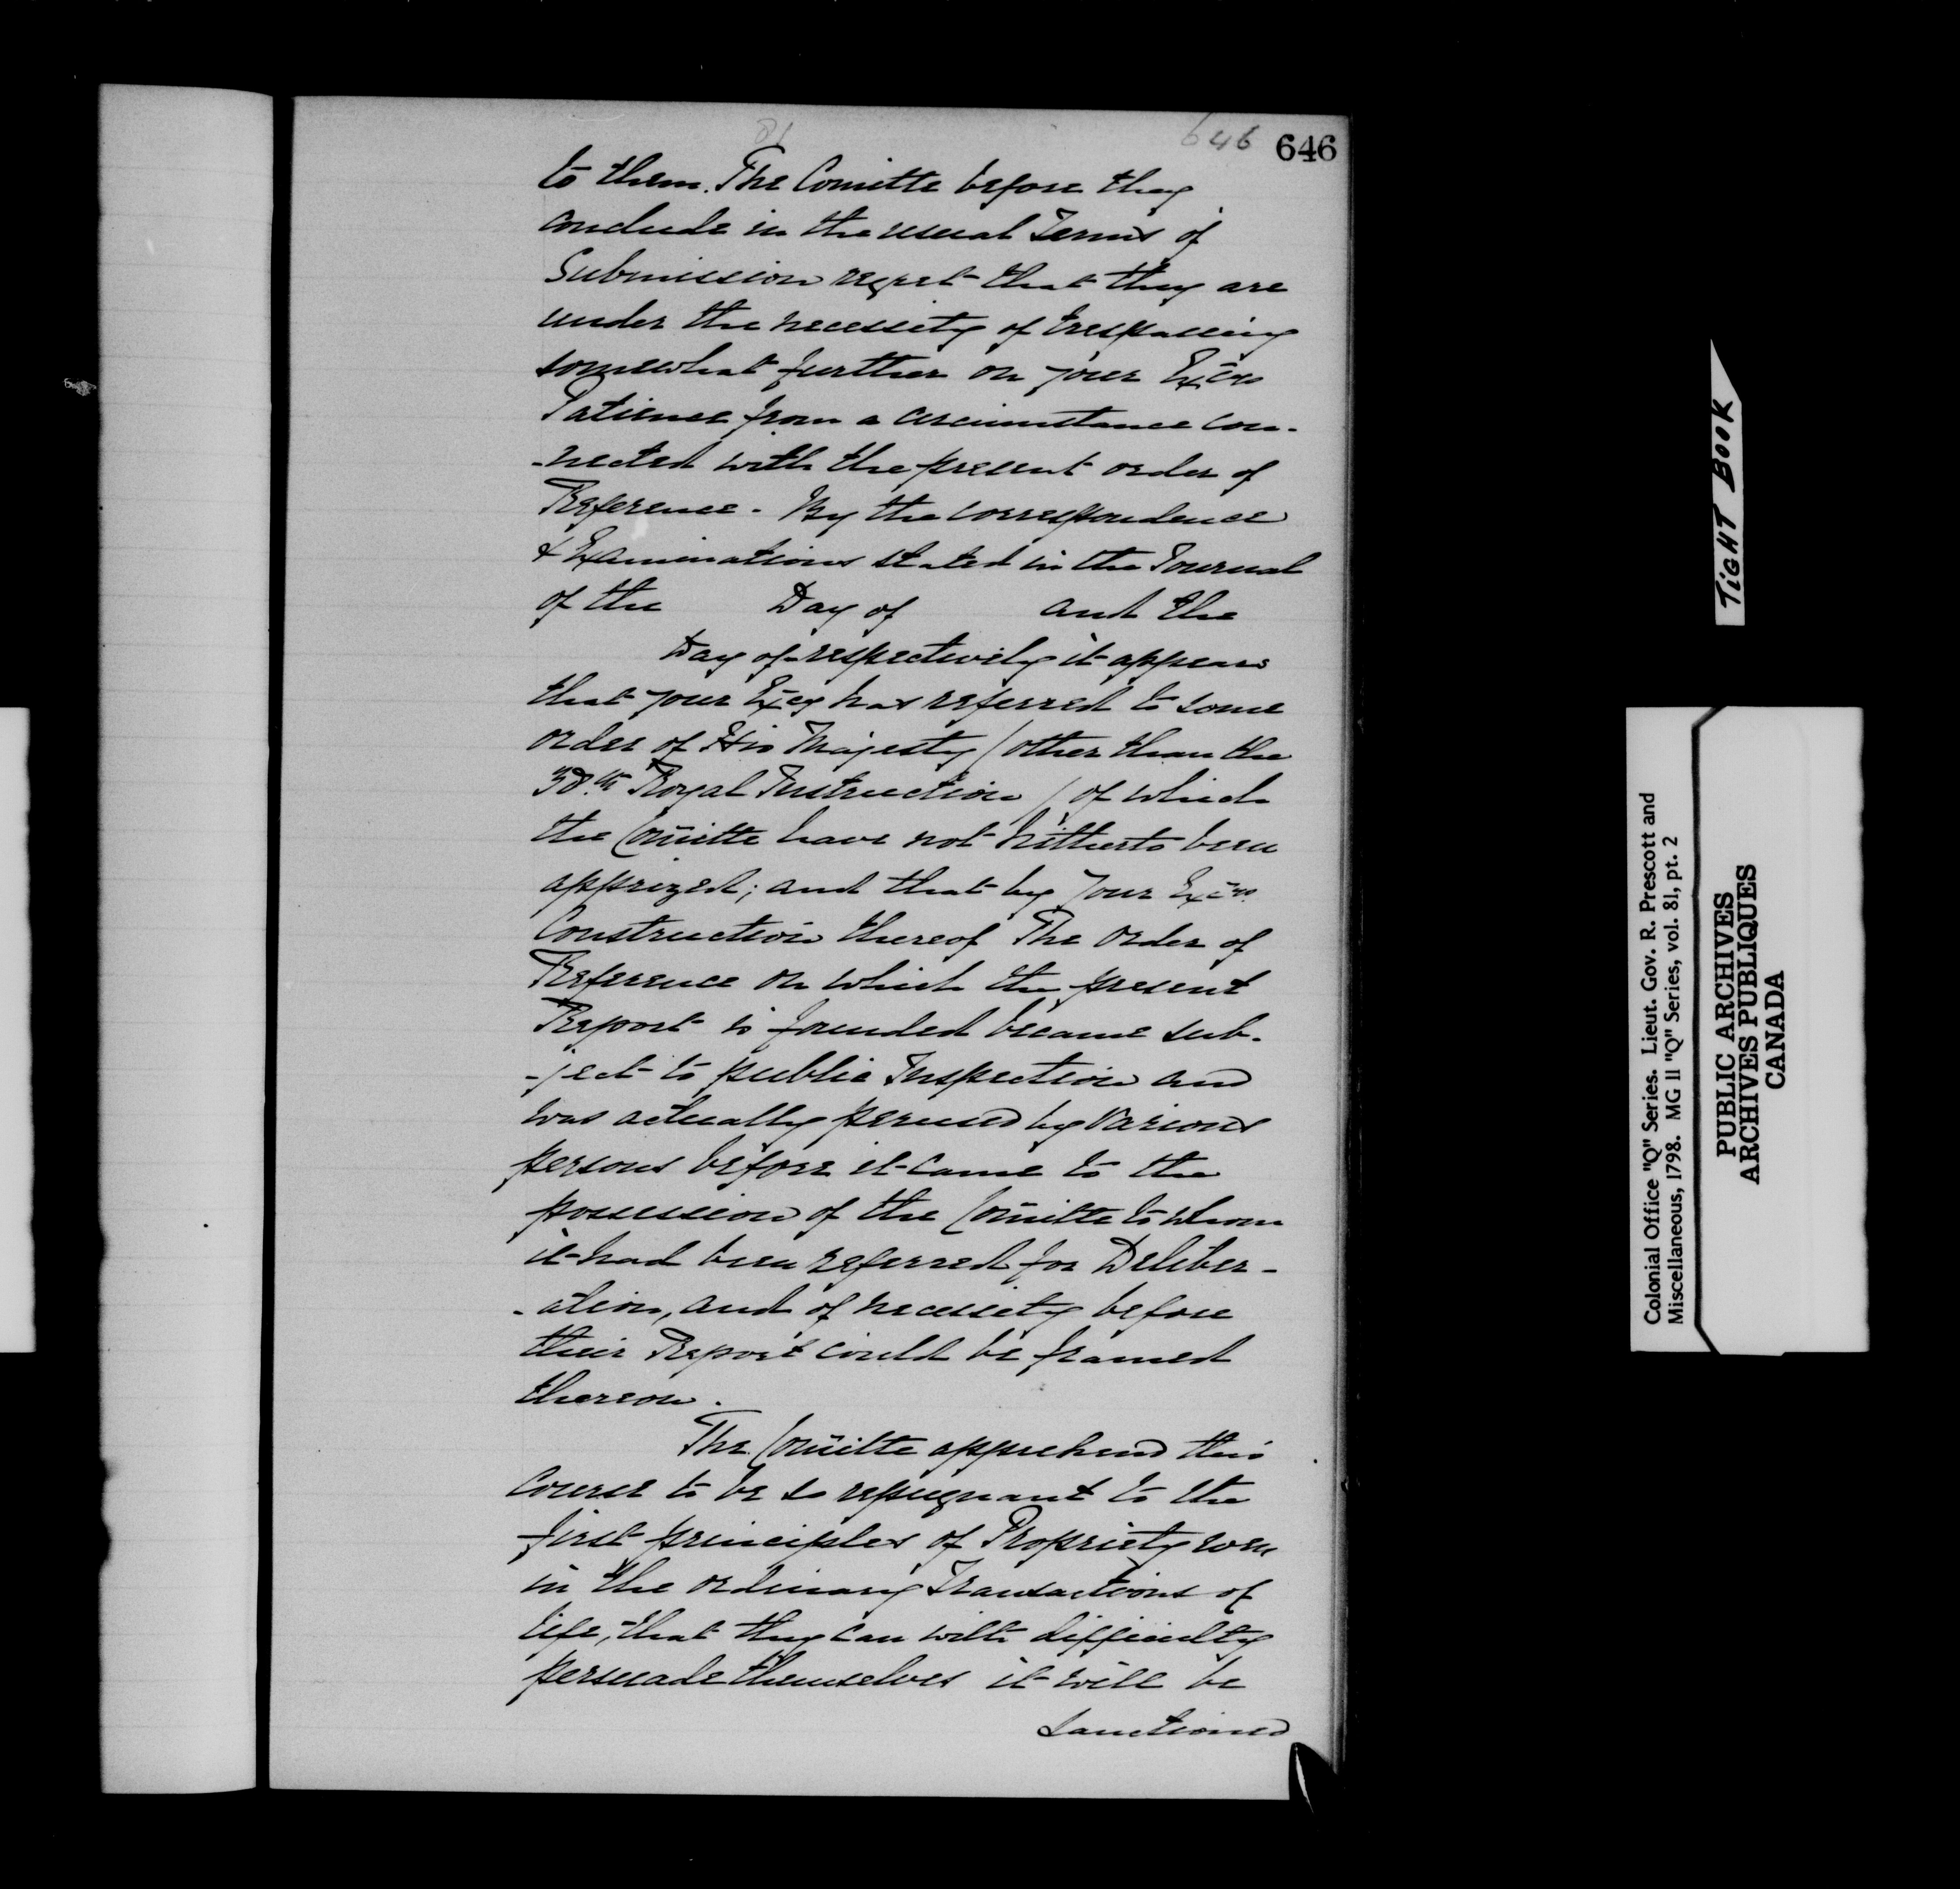 81
646 646
to them. The Comitte before they
conclude in the usual Terms of
Submission regret that they are
under the necessity of trespassing
somewhat further on your Excys
Patience from a circumstance con-
-nected with the present order of
Reference. By the correspondence
& Examinations stated in the Journal
of the Day of and the
Day of respectively it appears
that your Excy has referred to some
order of His Majesty (other than the
38.th Royal Instruction) of which
the Comitte have not hitherto been
apprized; and that by your Excys.
Construction thereof The Order of
Reference on which the present
Report is founded became sub-
-ject to public Inspection and
was actually perused by various
persons before it came to the
possession of the Comitte to whom
it had been referred for Deliber-
-ation, and of necessity before
their Report could be framed
thereon.
The Comitte apprehend this
Course to be so repugnant to the
first principles of Propriety even
in the ordinary Transactions of
life, that they can with difficulty
persuade themselves it will be
sanctioned
TIGHT BOOK
Colonial Office "Q" Series. Lieut. Gov. R. Prescott and
Miscellaneous, 1798. MG 11 "Q" Series, vol. 81, pt. 2
PUBLIC ARCHIVES
ARCHIVES PUBLIQUES
CANADA